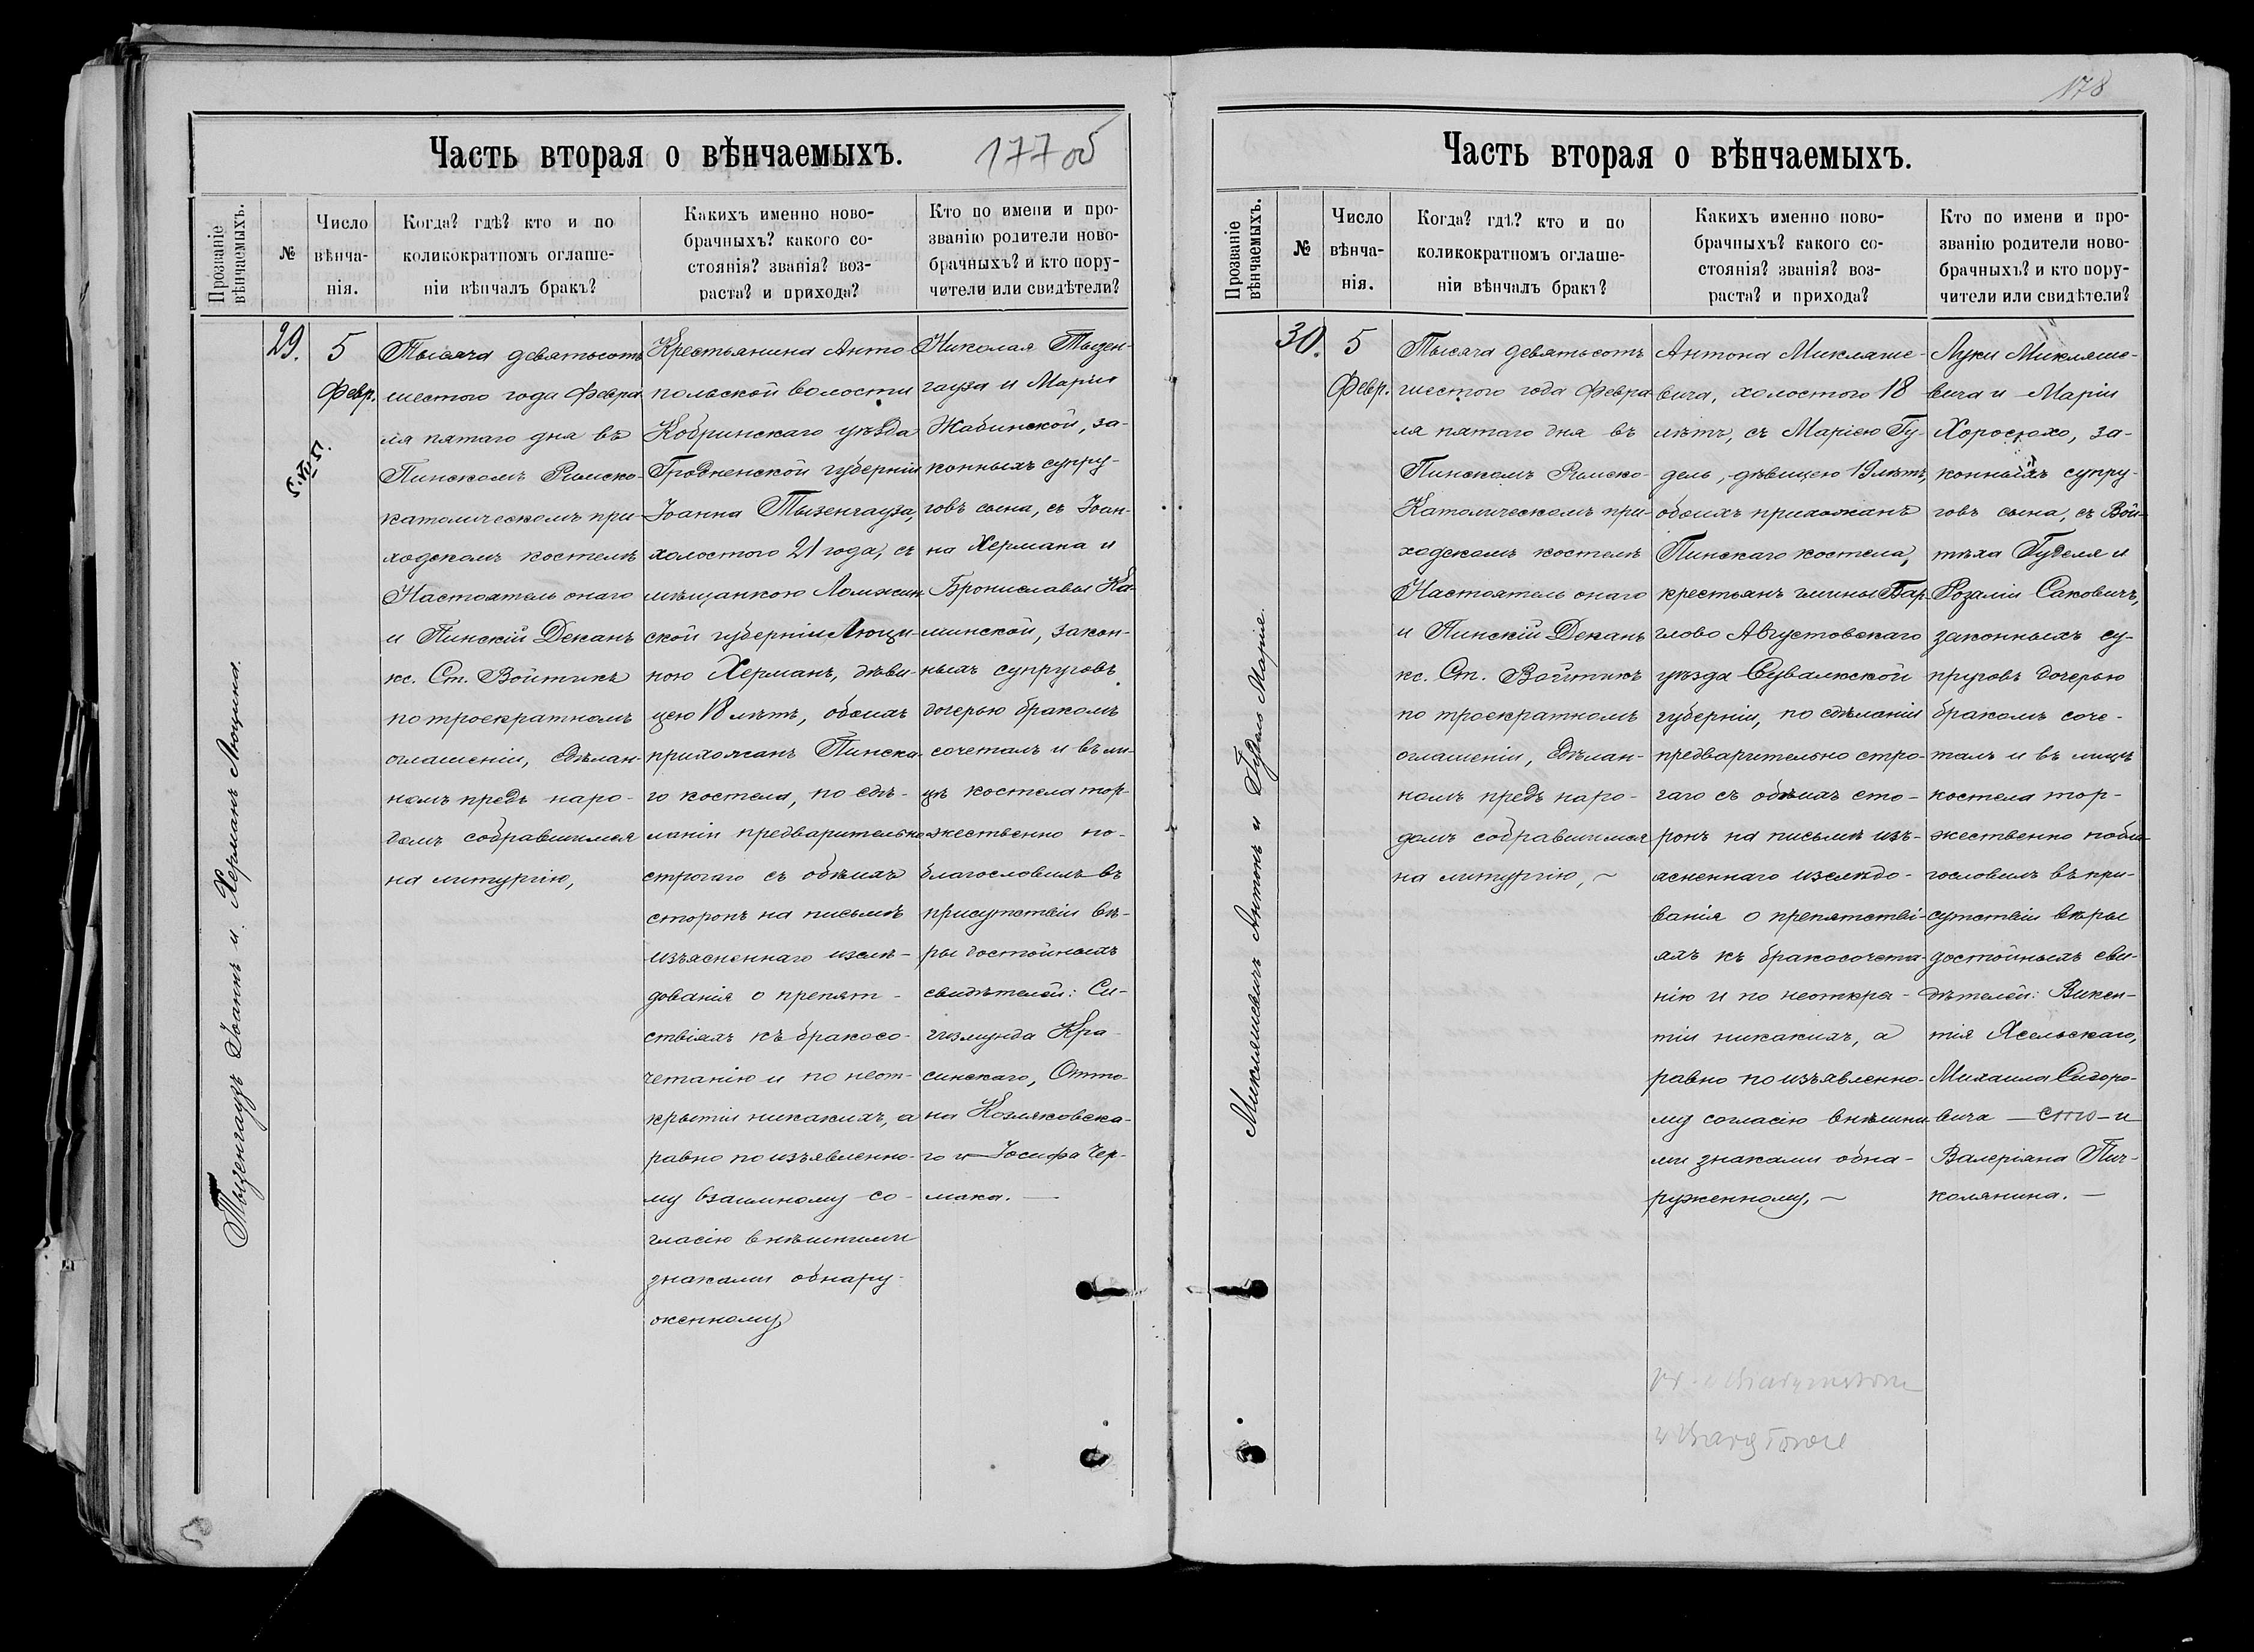 177 об
Часть вторая о вѣнчаемыхъ.
Прозваніе вѣнчаемыхъ.
№
Число
вѣнча-
нія.
Когда? гдѣ? кто и по
коликократномъ оглаше-
ніи вѣнчалъ бракъ?
Каихъ именно ново-
брачныхъ? какого со-
стоянія? званія? воз-
раста? и прихода?
Кто по имени и про-
званію родители ново-
брачныхъ? и кто пору-
чители или свидѣтели?
Тызенгаузъ Іоаннъ и Херманъ Люцина.
29.
5
Февр.
Тысяча девятьсотъ
шестого года Февра
ля пятаго дня въ
Пинскомъ Римско-
католическомъ при-
ходскомъ костелѣ
Настоятель онаго
и Пинскій Деканъ
кс. Ст. Войтикъ
по троекратномъ
оглашеніи, сдѣлан-
номъ предъ наро-
домъ собравшимся
на литургію,
Крестьянина Анто-
польской волости
Кобринскаго уѣзда
Гродненской губерніи
Іоанна Тызенгауза,
холостого 21 года, съ
мѣщанкою Ломжин
ской губерніи Люци-
ною Херманъ, дѣви-
цею 18 лѣтъ, обоихъ
прихожанъ Пинска-
го костела, по сдѣ-
ланіи предварительно
строгаго съ обѣихъ
сторонъ на письмѣ
изъясненнаго изслѣ-
дованія о препят-
ствіяхъ къ бракосо-
четанію и по неот-
крытіи никакихъ, а
равно по изъявленно-
му взаимному со-
гласію внѣшними
знаками обнару-
женному,
Николая Тызен-
гауза и Маріи
Жабинской, за-
конныхъ супру-
говъ сына, съ Іоан-
на Хермана и
Брониславы Ка-
минской, закон-
ныхъ супруговъ
дочерью бракомъ
сочеталъ и въ ли-
цѣ костела тор-
жественно по-
благословилъ въ
присутствіи вѣ-
ры достойныхъ
свидѣтелей: Си-
гизмунда Кра-
синскаго, Отто-
на Козляковска-
го и Іосифа Чер-
мака.
178
Часть вторая о вѣнчаемыхъ.
Прозваніе вѣнчаемыхъ.
№
Число
вѣнча-
нія.
Когда? гдѣ? кто и по
коликократномъ оглаше-
ніи вѣнчалъ бракъ?
Какихъ именно ново-
брачныхъ? какого со-
стоянія? званія? воз-
раста? и прихода?
Кто по имени и про-
званію родители ново-
брачныхъ? и кто пору-
чители или свидѣтели?
Микляшевичъ Антонъ и Гудель Марія
30.
5
Февр.
Тысяча девятьсотъ
шестого года Февра
ля пятаго дня въ
Пинскомъ Римско-
Католическомъ при-
ходскомъ костелѣ
Настоятель онаго
и Пинскій Деканъ
кс. Ст. Войтикъ
по троекратномъ
оглашеніи, сдѣлан-
номъ предъ наро-
домъ собравшимся
на литургію, ~
Антона Микляше-
вича, холостого 18
лѣтъ, съ Маріею Гу-
дель, дѣвицею 19 лѣтъ,
обоихъ прихожанъ
Пинскаго костела,
крестьянъ гмины Бар-
глово Августовскаго
уѣзда Сувалкской
губерніи, по сдѣланіи
предварительно стро-
гаго съ обѣихъ сто-
ронъ на письмѣ изъ-
ясненнаго изслѣдо-
ванія о препятстві-
яхъ къ бракосочета-
нію и по неоткры-
тіи никакихъ, а
равно по изъявленно-
му согласію внѣшни-
ми знаками обна-
руженному, ~
Луки Микляше-
вича и Маріи
Хоростохо, за-
конныхъ супру-
говъ сына, съ Вой-
тѣха Гуделя и
Розаліи Саковичъ,
законныхъ су-
пруговъ дочерью
бракомъ соче-
талъ и въ лицѣ
костела тор-
жественно побла-
гословилъ въ при-
сутствіи вѣры
достойныхъ сви-
дѣтелей: Викен-
тія Ясельскаго,
Михаила Сидоро-
вича
Валеріяна Пич-
колянина. —